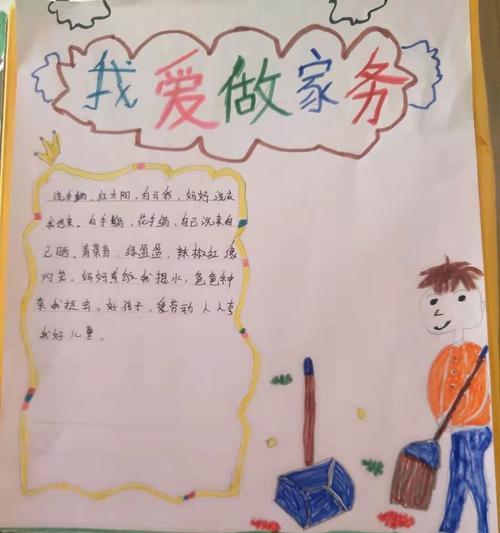 我爱做家务
洗手绢，红太阳，白云彩，妈妈洗衣
我也来。白手绢，花手绢，自己洗来自
己晒。青菜青，绿盈盈，辣椒红像
灯笼。妈妈煮饭我提水，爸爸种
菜我捉虫。好孩子，爱劳动人人夸
我好儿童。